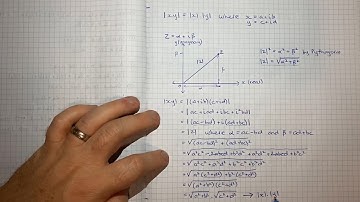 |xy| = |x| |y| where x = a+ib
y = c+id
Z = α + iβ
y (imaginary)
|z|² = α² + β² by Pythagoras
|z| = √α² + β²
β
|z|
z
0
α
x (real)
|xy| = |(a+ib)(c+id)|
= |ac + iad + ibc + i²bd|
= |(ac - bd) + i(ad + bc)|
= |z| where α = ac - bd and β = ad + bc
= √(ac - bd)² + (ad + bc)²
= √a²c² - 2abcd + b²d² + a²d² + 2abcd + b²c²
= √a²c² + a²d² + b²c² + b²d²
= √a²(c² + d²) + b²(c² + d²)
= √(a² + b²)(c² + d²)
= √a² + b² · √c² + d² → |x|·|y|